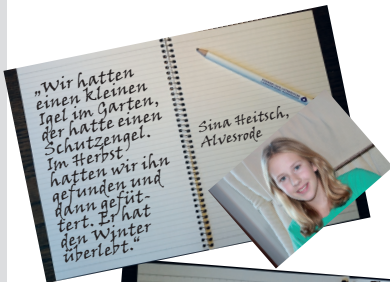 „Wir hatten
einen kleinen
Igel im Garten,
der hatte einen
Schutzengel.
Im Herbst
hatten wir ihn
gefunden und
dann gefüt-
tert. Er hat
den Winter
überlebt.“
Sina Heitsch,
Alvesrode